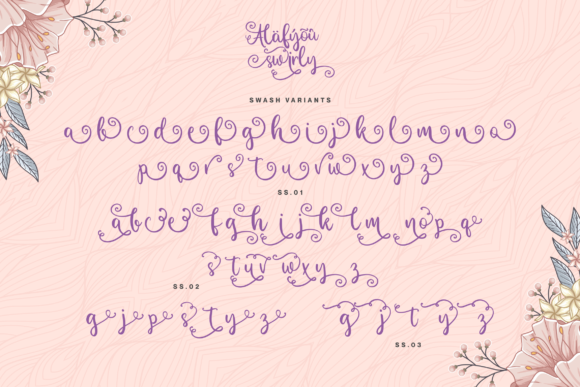 Aläfýõû
swirly
SWASH VARIANTS
a b c d e f g h i j k l m n o
p q r s t u v w x y z
SS.01
a b c e f g h i j k l m n o p q
s t u v w x y z
SS.02
g j p s t y z e
g j t y z
SS.03